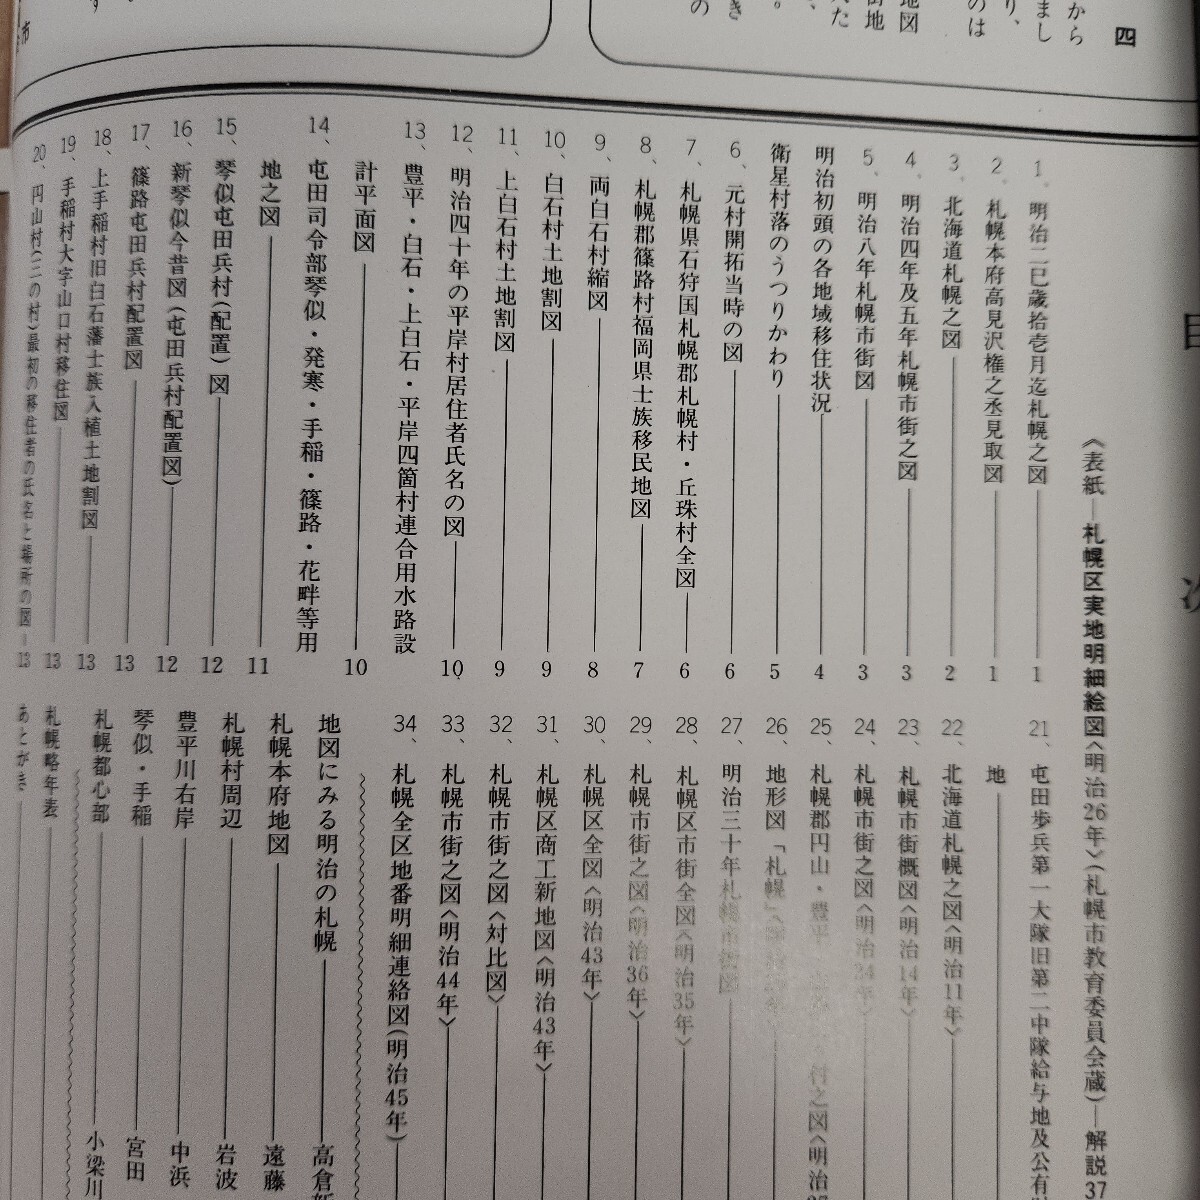 四
から
まし
り、
のは
地図
街地
た
き
の
目次
《表紙―札幌区実地明細絵図〈明治26年〉(札幌市教育委員会蔵)―解説37
1、明治二巳歳拾壱月迄札幌之図 1
2、札幌本府高見沢権之丞見取図 1
3、北海道札幌之図 2
4、明治四年及五年札幌市街之図 3
5、明治八年札幌市街図 3
明治初頭の各地域移住状況 4
衛星村落のうつりかわり 5
6、元村開拓当時の図 6
7、札幌県石狩国札幌郡札幌村・丘珠村全図 6
8、札幌郡篠路村福岡県士族移民地図 7
9、両白石村縮図 8
10、白石村土地割図 9
11、上白石村土地割図 9
12、明治四十年の平岸村居住者氏名の図 10
13、豊平・白石・上白石・平岸四箇村連合用水路設
計平面図 10
14、屯田司令部琴似・発寒・手稲・篠路・花畔等用
地之図 11
15、琴似屯田兵村(配置)図 12
16、新琴似今昔図(屯田兵村配置図) 12
17、篠路屯田兵村配置図 13
18、上手稲村旧白石藩士族入植土地割図 13
19、手稲村大字山口村移住図 13
20、円山村(二の村)最初の移住者の氏名と場所の図 13
21、屯田歩兵第一大隊旧第二中隊給与地及公有
地
22、北海道札幌之図〈明治11年〉
23、札幌市街概図〈明治14年〉
24、札幌市街之図〈明治24年〉
25、札幌郡円山・豊平 村之図〈明治
26、地形図「札幌」
27、明治三十年札幌市街図
28、札幌区市街全図〈明治35年〉
29、札幌市街之図〈明治36年〉
30、札幌区全図〈明治43年〉
31、札幌区商工新地図〈明治43年〉
32、札幌市街之図〈対比図〉
33、札幌市街之図〈明治44年〉
34、札幌全区地番明細連絡図(明治45年)
地図にみる明治の札幌 高倉新
札幌本府地図 遠藤
札幌村周辺 岩波
豊平川右岸 中浜
琴似・手稲 宮田
札幌都心部 小梁川
札幌略年表
あとがき